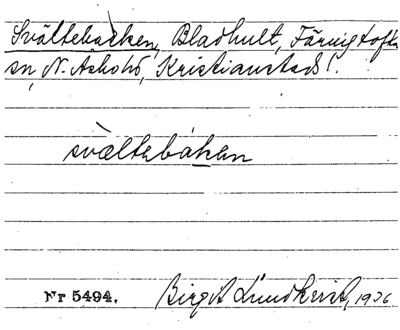 Svältebacken, Bladhult, Färingtofta
sn, N. Åsbohd, Kristianstads l.
svältebakan
Nr 5494.
Birgit Lundkvist, 1936